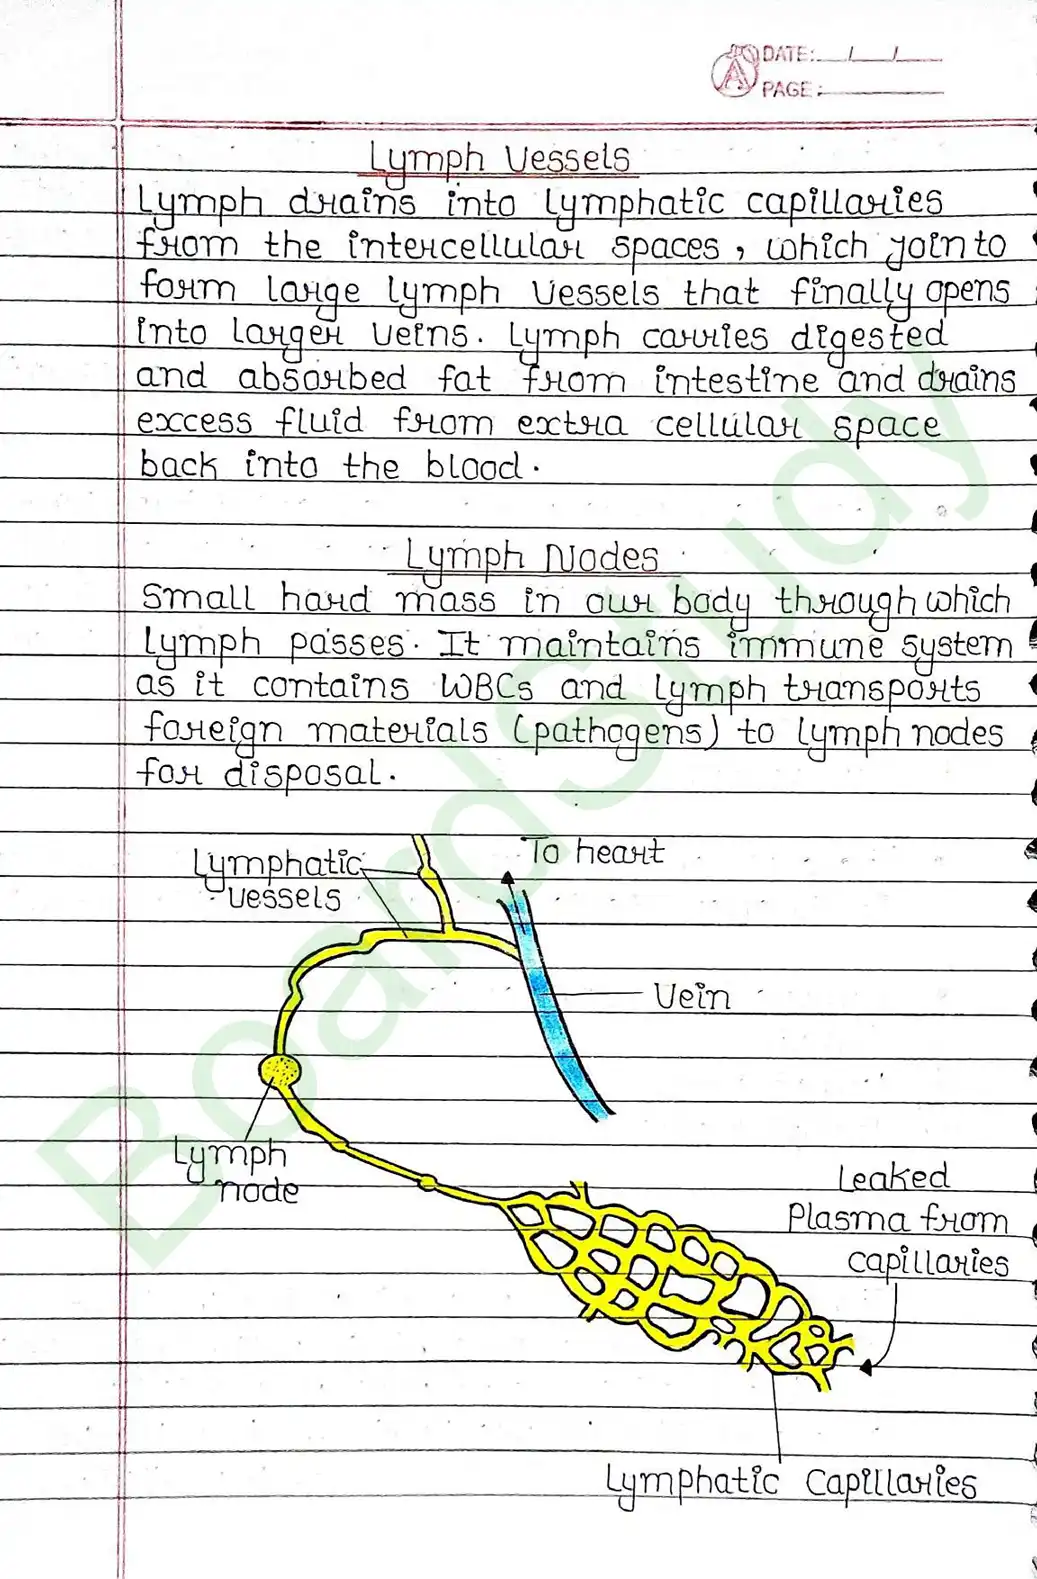 DATE: / /
PAGE:
Lymph Vessels
Lymph drains into lymphatic capillaries
from the intercellular spaces, which join to
form large lymph vessels that finally opens
into larger veins. Lymph carries digested
and absorbed fat from intestine and drains
excess fluid from extra cellular space
back into the blood.
Lymph Nodes
Small hard mass in our body through which
lymph passes. It maintains immune system
as it contains WBCs and lymph transports
foreign materials (pathogens) to lymph nodes
for disposal.
To heart
Lymphatic
vessels
Vein
Lymph
node
Leaked
Plasma from
capillaries
Lymphatic Capillaries
BoardStudy